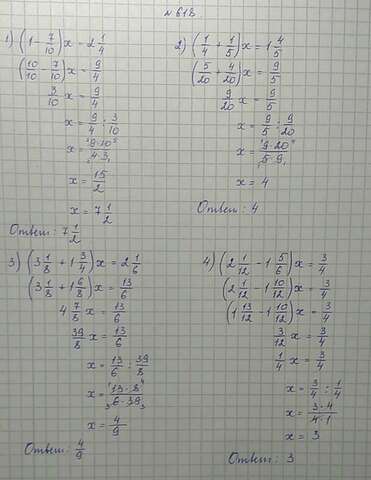 № 618
1) (1 - 7/10) x = 2 1/4
(10/10 - 7/10) x = 9/4
3/10 x = 9/4
x = 9/4 : 3/10
x = 9·10/4·3
x = 15/2
x = 7 1/2
Ответ: 7 1/2
2) (1/4 + 1/5) x = 1 4/5
(5/20 + 4/20) x = 9/5
9/20 x = 9/5
x = 9/5 : 9/20
x = 9·20/5·9
x = 4
Ответ: 4
3) (3 1/8 + 1 3/4) x = 2 1/6
(3 1/8 + 1 6/8) x = 13/6
4 7/8 x = 13/6
39/8 x = 13/6
x = 13/6 : 39/8
x = 13·8/6·39
x = 4/9
Ответ: 4/9
4) (2 1/12 - 1 5/6) x = 3/4
(2 1/12 - 1 10/12) x = 3/4
(1 13/12 - 1 10/12) x = 3/4
3/12 x = 3/4
1/4 x = 3/4
x = 3/4 : 1/4
x = 3·4/4·1
x = 3
Ответ: 3